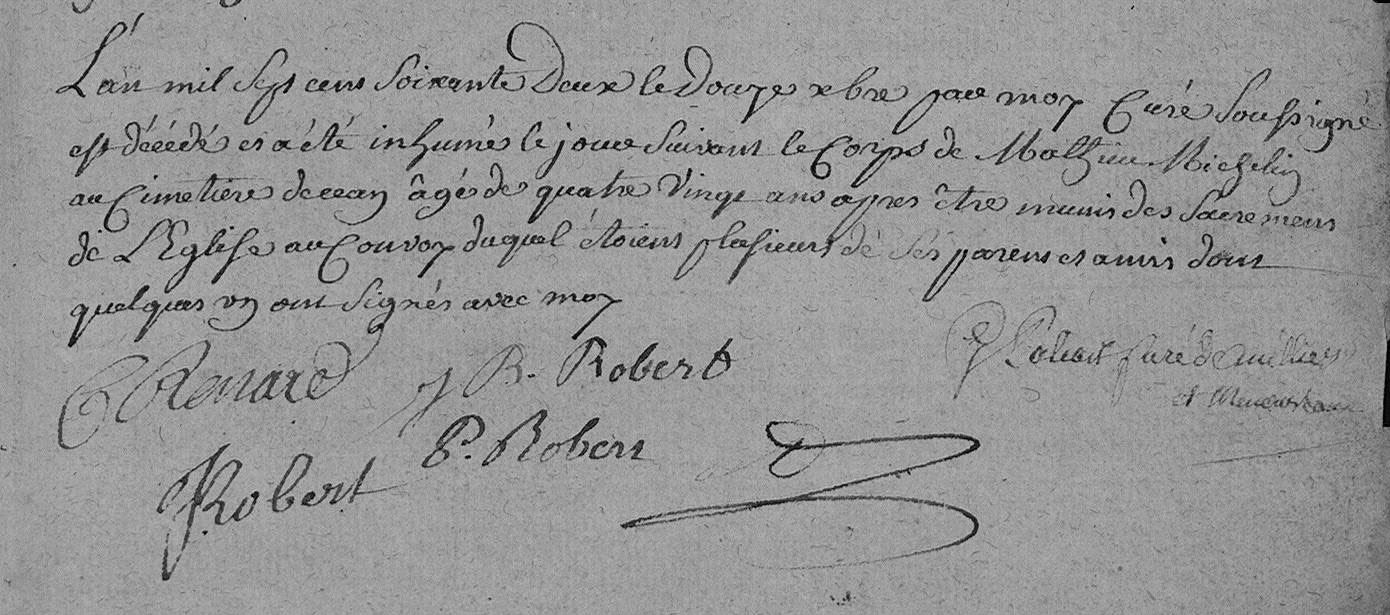 L'an mil Sept cens Soixante Deux le Douze xbre par moy Curé Soussigné
est décédé et a été inhumé le jour Suivant le Corps de Mathieu Michelin
au Cimetiere de cean âgé de quatre Vingt ans apres être muni des Sacremens
de L'Eglise au Convoy duquel étoient plusieurs de Ses parens et amis dont
quelques un ont Signés avec moy
C Renard J B. Robert curé de
et
P. Robert
J Robert